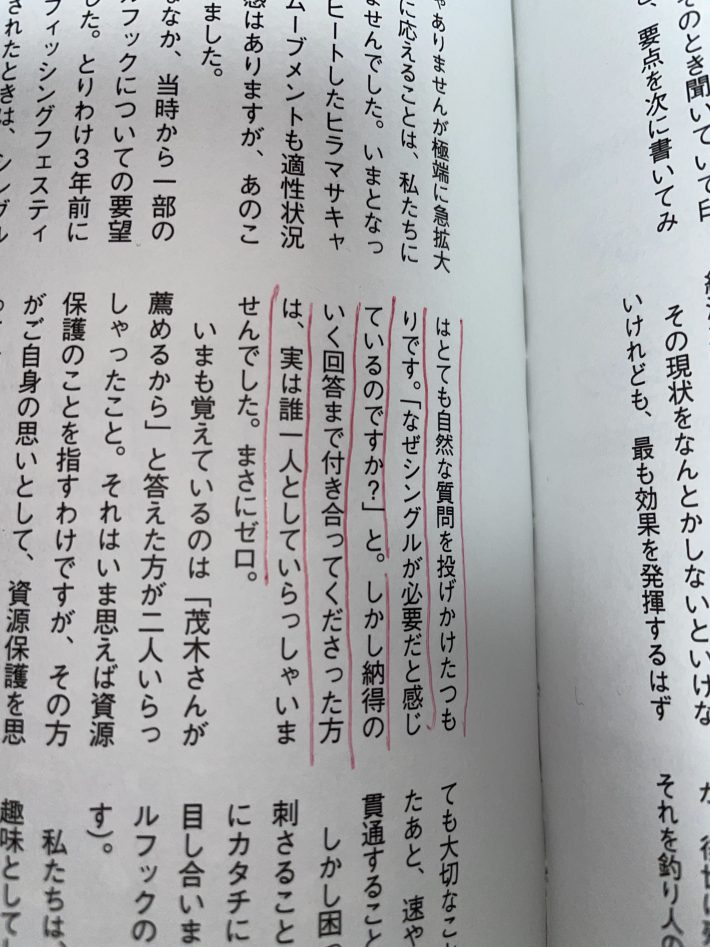 そのとき聞いていて印
、要点を次に書いてみ
その現状をなんとかしないといけな
いけれども、最も効果を発揮するはず
それを釣り人の
ゃありませんが極端に急拡大
に応えることは、私たちに
ませんでした。いまとなっ
ヒートしたヒラマサキャ
ムーブメントも適性状況
感はありますが、あのこ
ました。
なか、当時から一部の
ルフックについての要望
した。とりわけ3年前に
フィッシングフェスティ
されたときは、シングル
はとても自然な質問を投げかけたつも
りです。「なぜシングルが必要だと感じ
ているのですか?」と。しかし納得の
いく回答まで付き合ってくださった方
は、実は誰一人としていらっしゃいま
せんでした。まさにゼロ。
いまも覚えているのは「茂木さんが
薦めるから」と答えた方が二人いらっ
しゃったこと。それはいま思えば資源
保護のことを指すわけですが、その方
がご自身の思いとして、資源保護を思
ても大切なこと
たあと、速や
貫通すること
しかし困っ
刺さること
にカタチに
目し合いま
ルフックの
す)。
私たちは、
趣味として